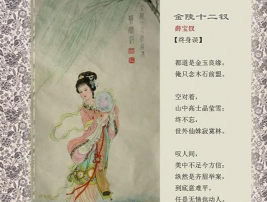 金陵十二钗
薛宝钗
【终身误】
都道是金玉良缘，
俺只念木石前盟。
空对着，
山中高士晶莹雪；
终不忘，
世外仙姝寂寞林。
叹人间，
美中不足今方信：
纵然是齐眉举案，
到底意难平。